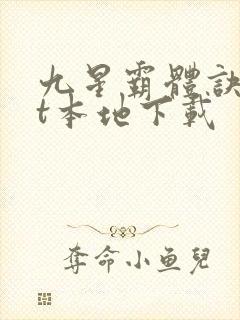 九星霸體訣
t本地下載
奪命小鱼兒